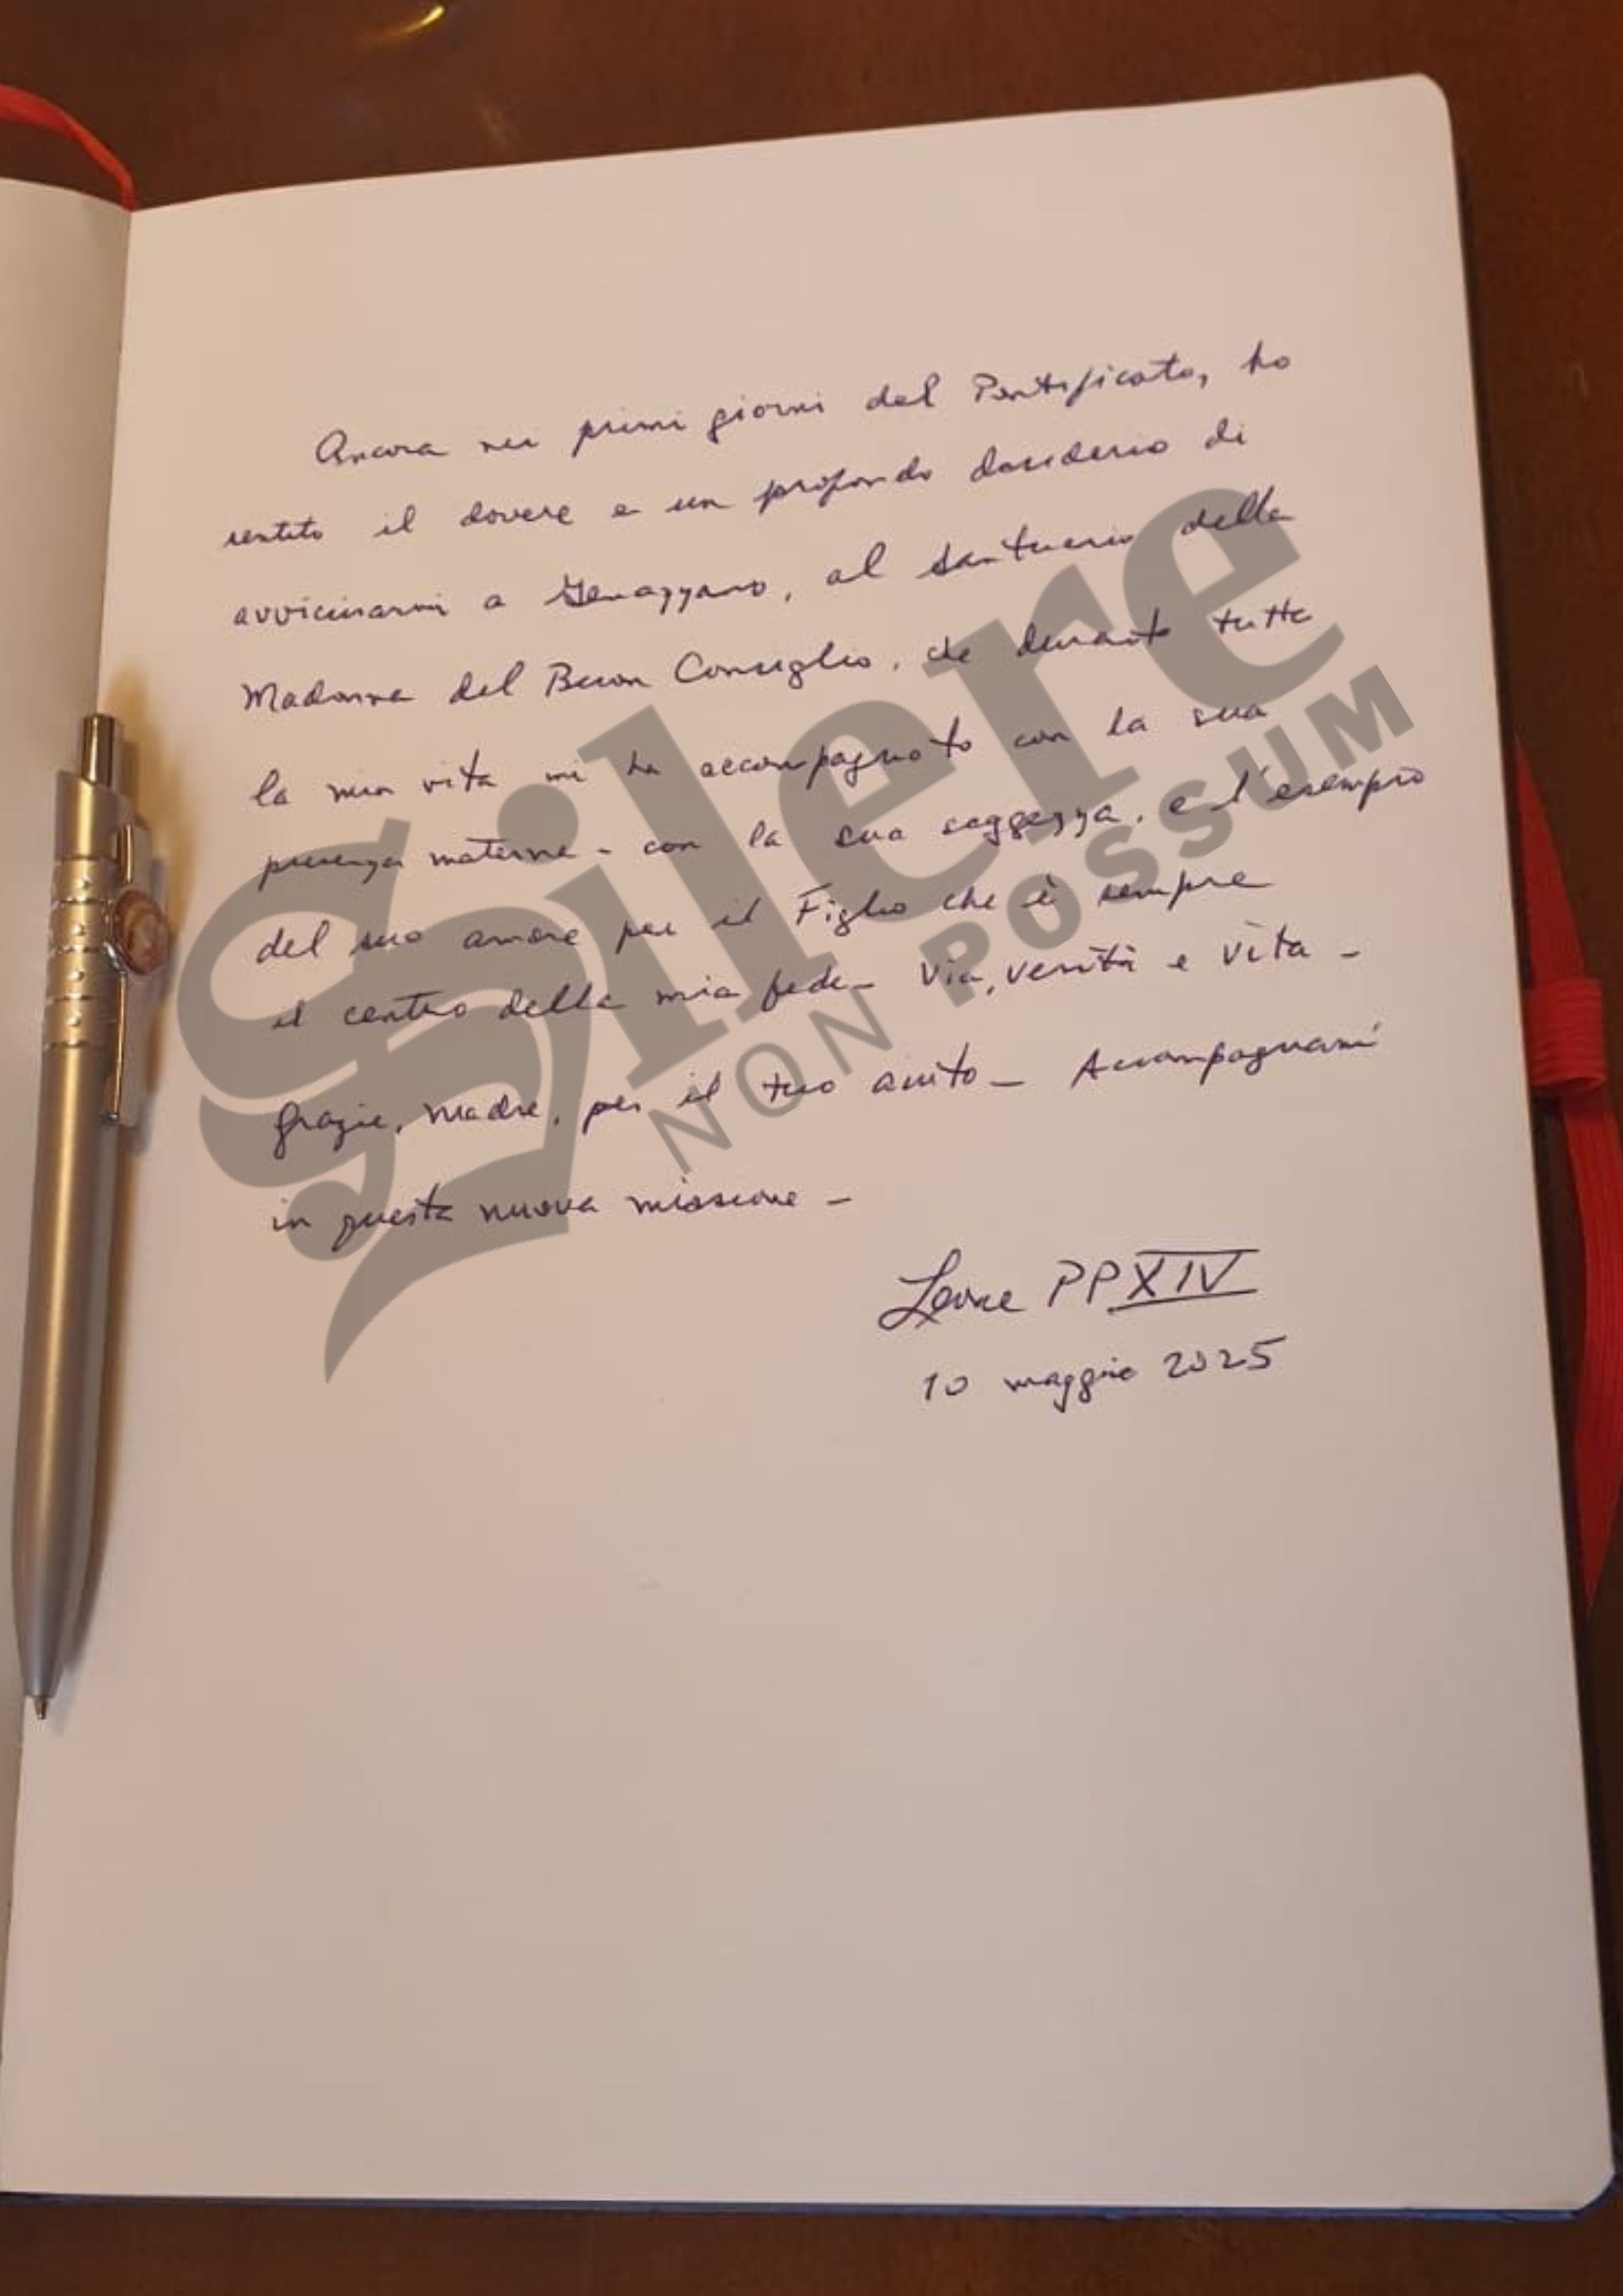 Ancora nei primi giorni del Pontificato, ho
sentito il dovere e un profondo desiderio di
avvicinarmi a Genazzano, al santuario della
Madonna del Buon Consiglio, che durante tutta
la mia vita mi ha accompagnato con la sua
presenza materna - con la sua saggezza, e l'esempio
del suo amore per il Figlio che è sempre
il centro della mia fede - Via, verità e vita -
Grazie, Madre, per il tuo aiuto - Accompagnami
in questa nuova missione -
Leone PP XIV
10 maggio 2025
Silere
NON POSSUM